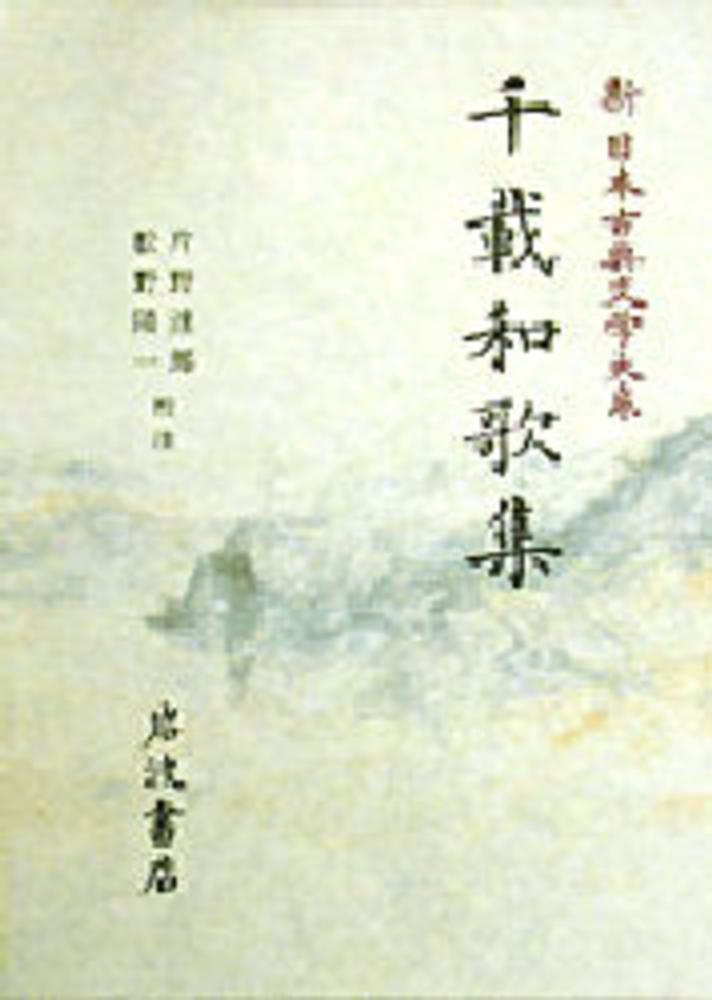 新日本古典文学大系
千載和歌集
片野達郎
松野陽一
校注
岩波書店